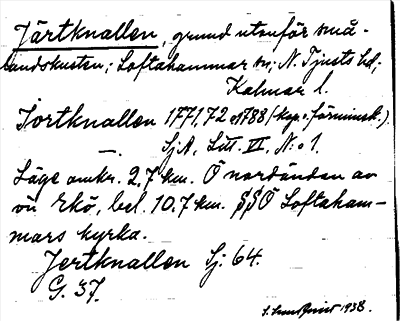 Järtknallen, grund utanför små-
landskusten; Loftahammar sn; N. Tjusts hd;
Kalmar l.
Jortknallen 1771, 72 o 1788 (kop. i förminsk.).
— SjA, Litt. VI, N:o 1.
Läge omkr. 2,7 km. Ö nordänden av
ön Rkö, bel. 10.7 km. SSÖ Loftaham-
mars kyrka.
Jertknallen Sj. 64.
G. 37.
1938.